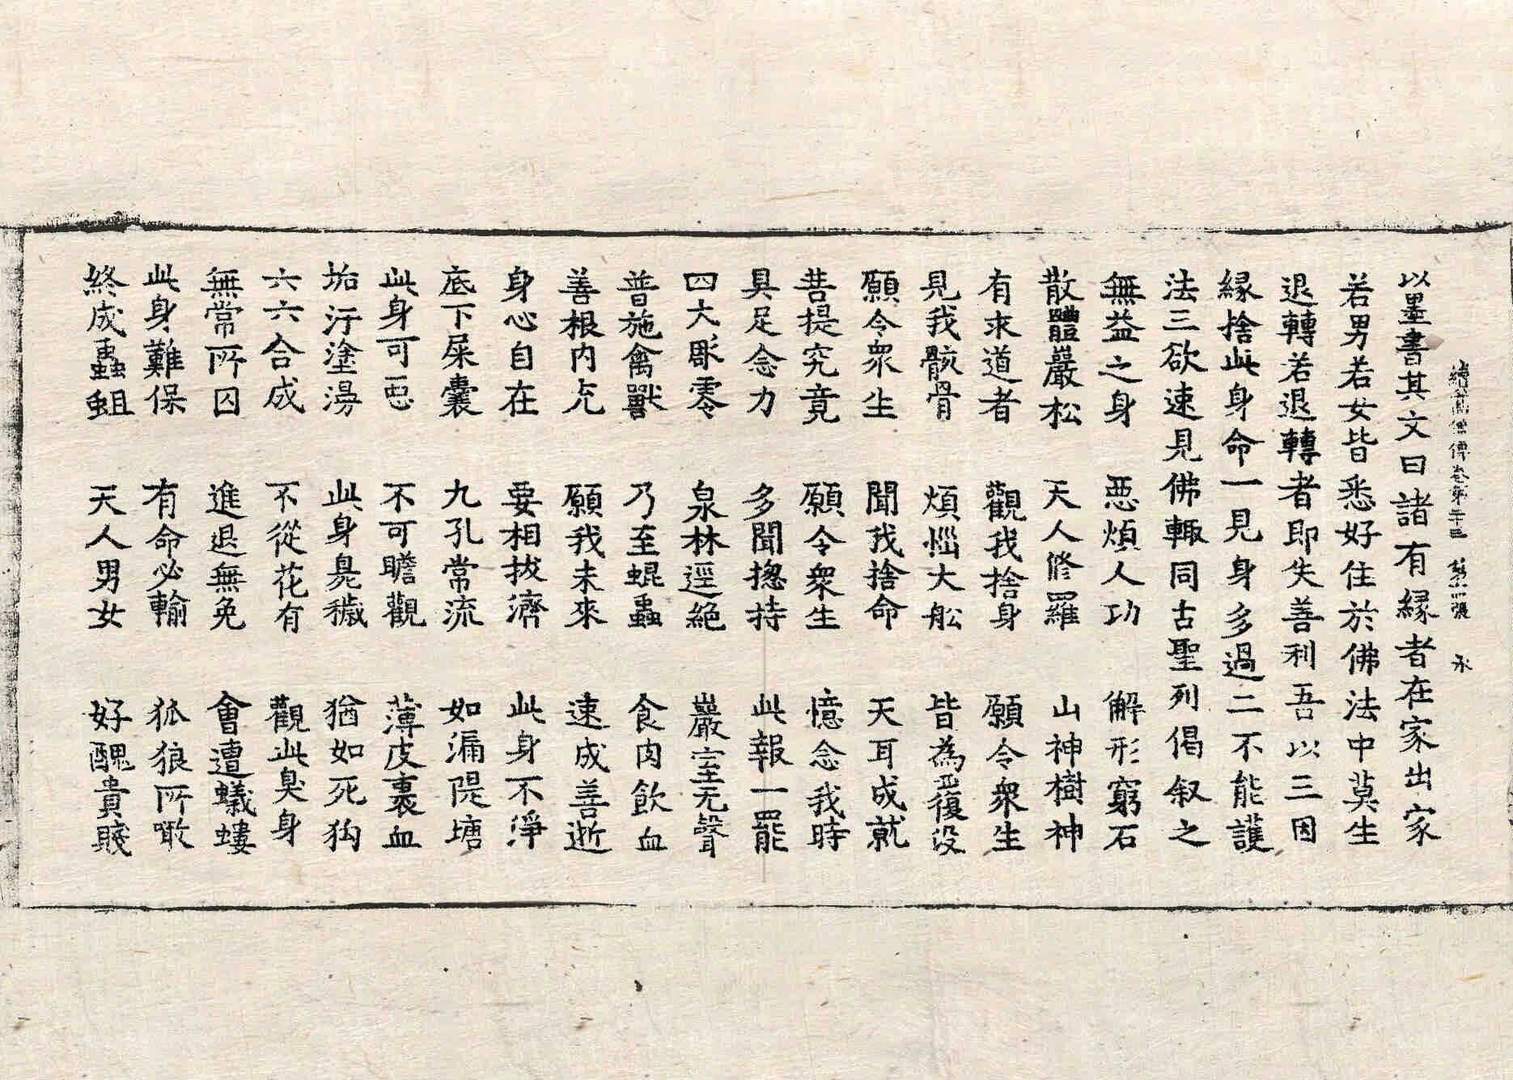 續高僧傳卷第二十三 第 張 承
以墨書其文曰諸有緣者在家出家
若男若女皆悉好住於佛法中莫生
退轉若退轉者即失善利吾以三因
緣捨此身命一見身多過二不能護
法三欲速見佛輙同古聖列偈叙之
無益之身 惡煩人功 解形窮石
散體巖松 天人修羅 山神樹神
有求道者 觀我捨身 願令眾生
見我骸骨 煩惱大船 皆為覆没
願令眾生 聞我捨命 天耳成就
菩提究竟 願令眾生 憶念我時
具足念力 多聞揔持 此報一罷
四大彫零 泉林逕絕 巖室无聲
普施禽獸 乃至蜫蟲 食肉飲血
善根內充 願我未來 速成善逝
身心自在 要相拔濟 此身不淨
底下屎囊 九孔常流 如漏隄塘
此身可惡 不可瞻觀 薄皮裹血
垢汙塗湯 此身臭穢 猶如死狗
六六合成 不從花有 觀此臭身
無常所囚 進退無免 會遭蟻螻
此身難保 有命必輸 狐狼所噉
終成蟲蛆 天人男女 好醜貴賤